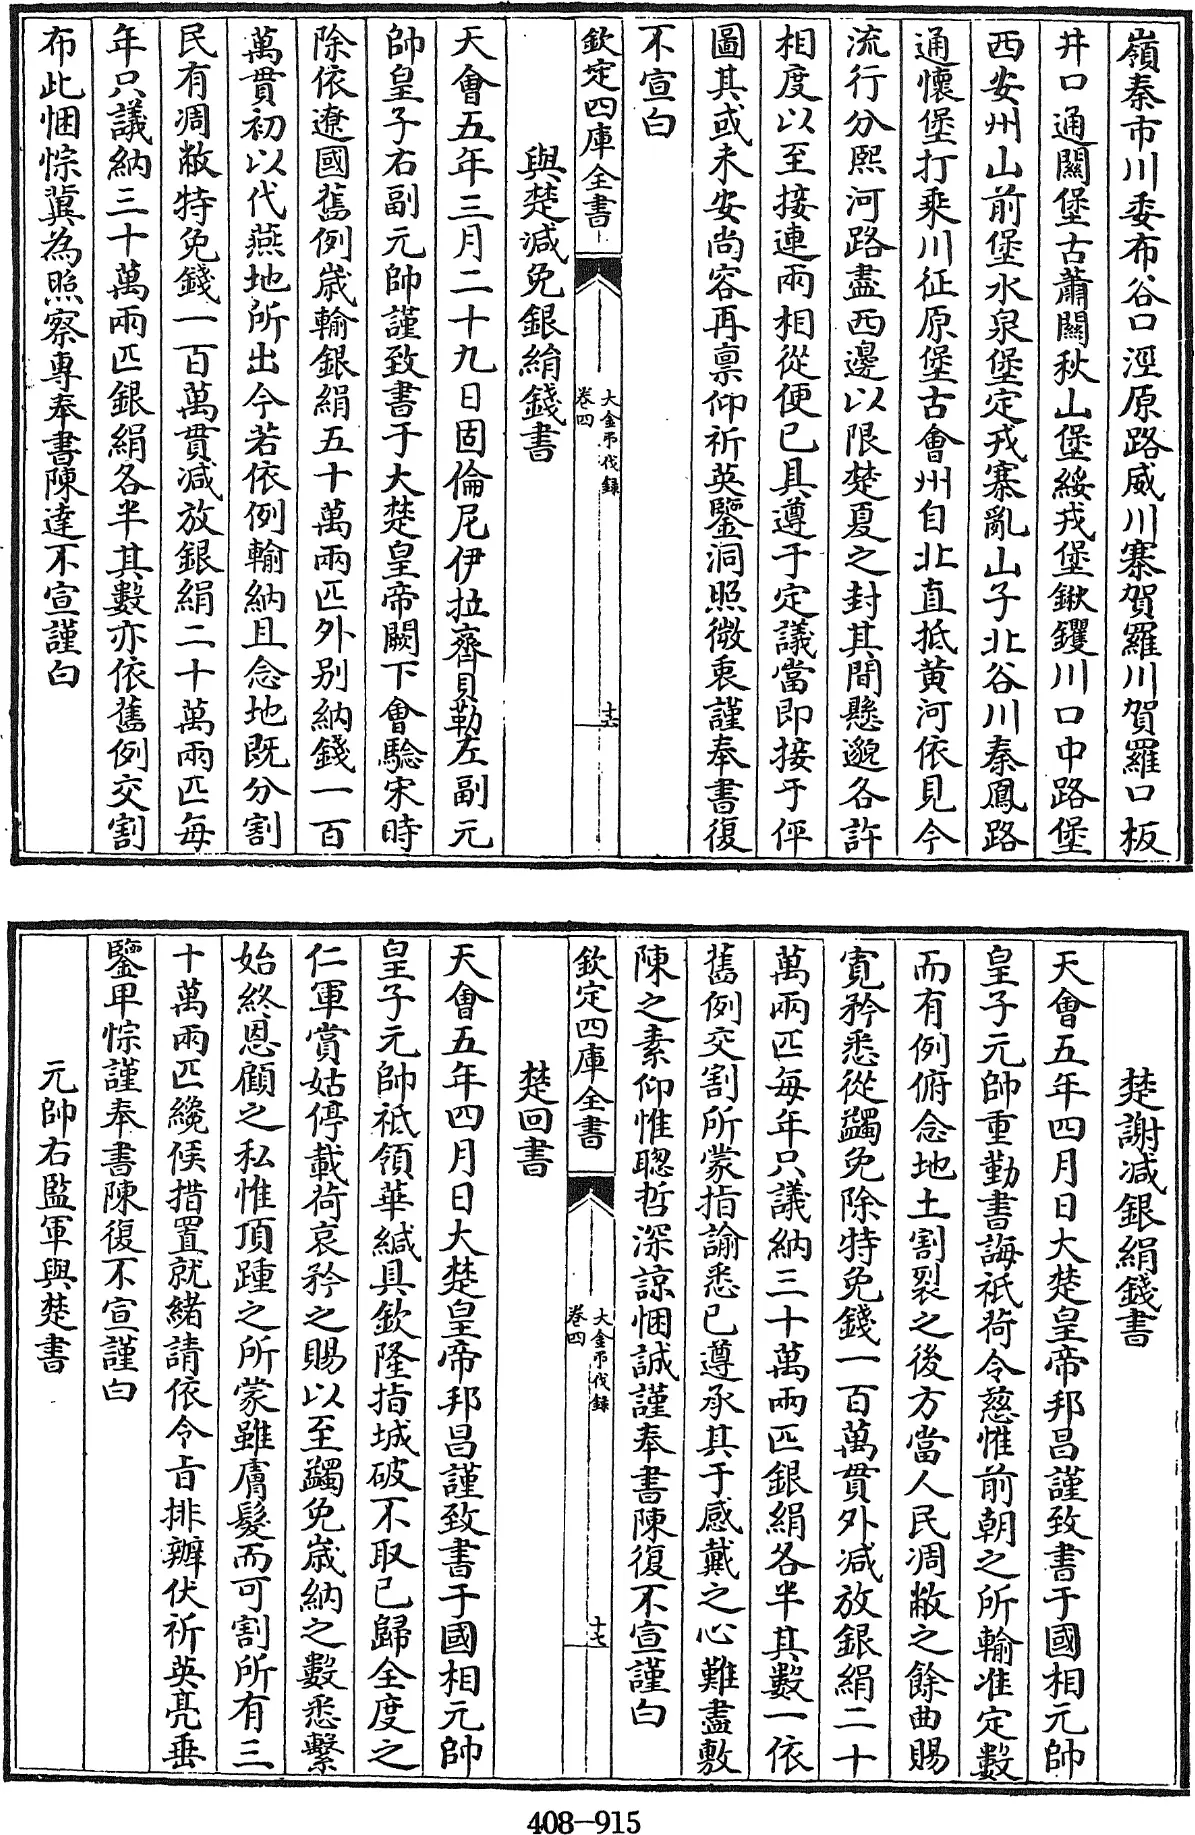 嶺秦市川委布谷口涇原路威川寨賀羅川賀羅口板
井口通關堡古蕭關秋山堡綏戎堡鍬钁川口中路堡
西安州山前堡水泉堡定戎寨亂山子北谷川秦鳳路
通懷堡打乘川征原堡古會州自北直抵黄河依見今
流行分熙河路盡西邊以限楚夏之封其間懸邈各許
相度以至接連兩相從便已具遵于定議當即接于伻
圖其或未安尚容再禀仰祈英鑒洞照微衷謹奉書復
不宣白
欽定四庫全書
大金弔伐録
卷四
十六
與楚減免銀絹錢書
天會五年三月二十九日固倫尼伊拉齊貝勒左副元
帥皇子右副元帥謹致書于大楚皇帝闕下會驗宋時
除依遼國舊例歲輸銀絹五十萬兩匹外别納錢一百
萬貫初以代燕地所出今若依例輸納且念地既分割
民有凋敝特免錢一百萬貫減放銀絹二十萬兩匹每
年只議納三十萬兩匹銀絹各半其數亦依舊例交割
布此悃悰冀為照察專奉書陳達不宣謹白
楚謝减銀絹錢書
天會五年四月日大楚皇帝邦昌謹致書于國相元帥
皇子元帥重勤書誨祇荷令慈惟前朝之所輸准定數
而有例俯念地土割裂之後方當人民凋敝之餘曲賜
寛矜悉從蠲免除特免錢一百萬貫外减放銀絹二十
萬兩匹每年只議納三十萬兩匹銀絹各半其數一依
舊例交割所蒙指諭悉已遵承其于感戴之心難盡敷
陳之素仰惟聰哲深諒悃誠謹奉書陳復不宣謹白
欽定四庫全書
大金弔伐録
卷四
十七
楚回書
天會五年四月日大楚皇帝邦昌謹致書于國相元帥
皇子元帥祇領華緘具欽隆指城破不取已歸全度之
仁軍賞姑停載荷哀矜之賜以至蠲免歲納之數悉繫
始終恩顧之私惟頂踵之所蒙雖膚髮而可割所有三
十萬兩匹纔候措置就緒請依令旨排辦伏祈英亮垂
鑒卑悰謹奉書陳復不宣謹白
元帥右監軍與楚書
408-915